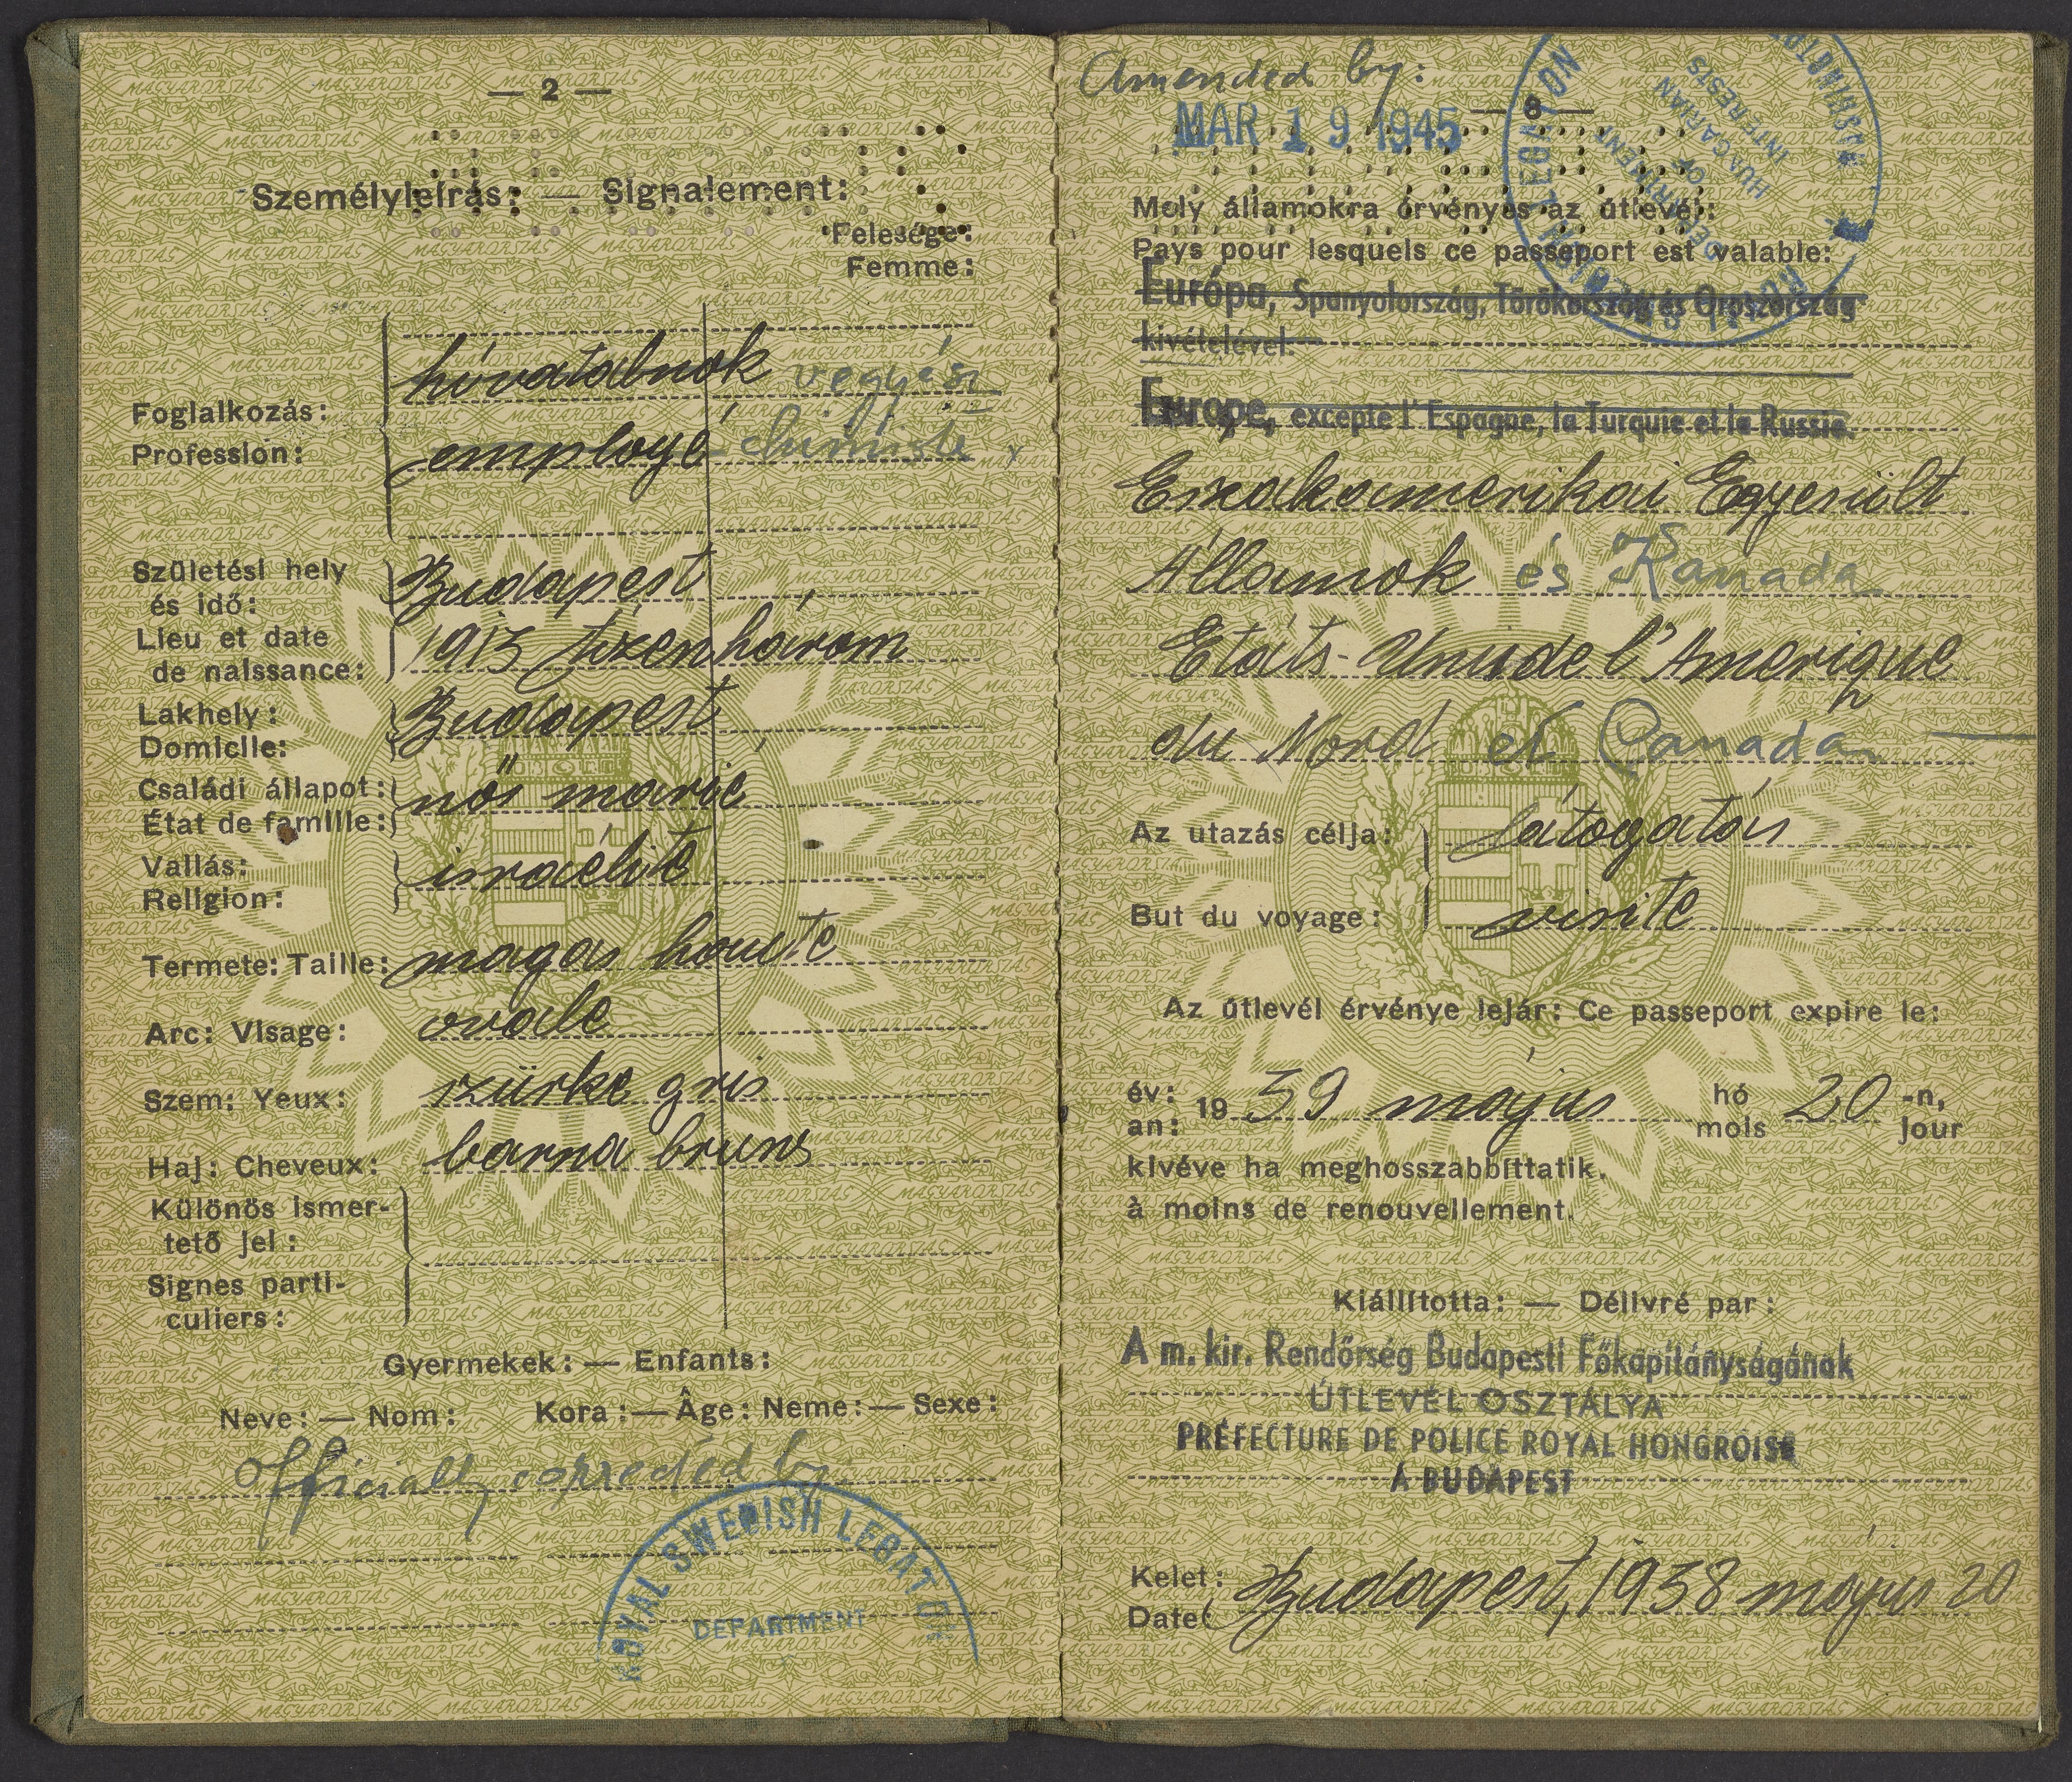 — 2 —
Személyleírás: — Signalement:
Felesége:
Femme:
hivatalnok vegyész
Foglalkozás:
Profession: employé chimiste
Születési hely
és idő: Budapest
Lieu et date
de naissance: 1913 tizenhárom
Lakhely: Budapest
Domicile:
Családi állapot: nős marié
État de famille:
Vallás: israélite
Religion:
Termete: Taille: magas haute
Arc: Visage: ovale
Szem: Yeux: szürke gris
Haj: Cheveux: barna bruns
Különös ismer-
tető jel:
Signes parti-
culiers:
Gyermekek: — Enfants:
Neve: — Nom: Kora: — Âge: Neme: — Sexe:
Officially corrected by
ROYAL SWEDISH LEGATION
DEPARTMENT
Amended by:
MAR 19 1945
— 8 —
ROYAL SWEDISH LEGATION WASHINGTON
DEPARTMENT
OF
HUNGARIAN
INTERESTS
Mely államokra érvényes az útlevél:
Pays pour lesquels ce passeport est valable:
Európa, Spanyolország, Törökország és Oroszország
kivételével.
Europe, excepté l'Espagne, la Turquie et la Russie.
Északamerikai Egyesült
Államok és Kanada
Etats-Unis de l'Amerique
du Nord et Canada
Az utazás célja: látogatás
But du voyage: visite
Az útlevél érvénye lejár: Ce passeport expire le:
év: 1939 május hó 20 -n,
an: mois jour
kivéve ha meghosszabbíttatik.
à moins de renouvellement.
Kiállította: — Délivré par:
A m. kir. Rendőrség Budapesti Főkapitányságának
ÚTLEVÉL OSZTÁLYA
PRÉFECTURE DE POLICE ROYAL HONGROISE
À BUDAPEST
Kelet: Budapest, 1938 május 20
Date: